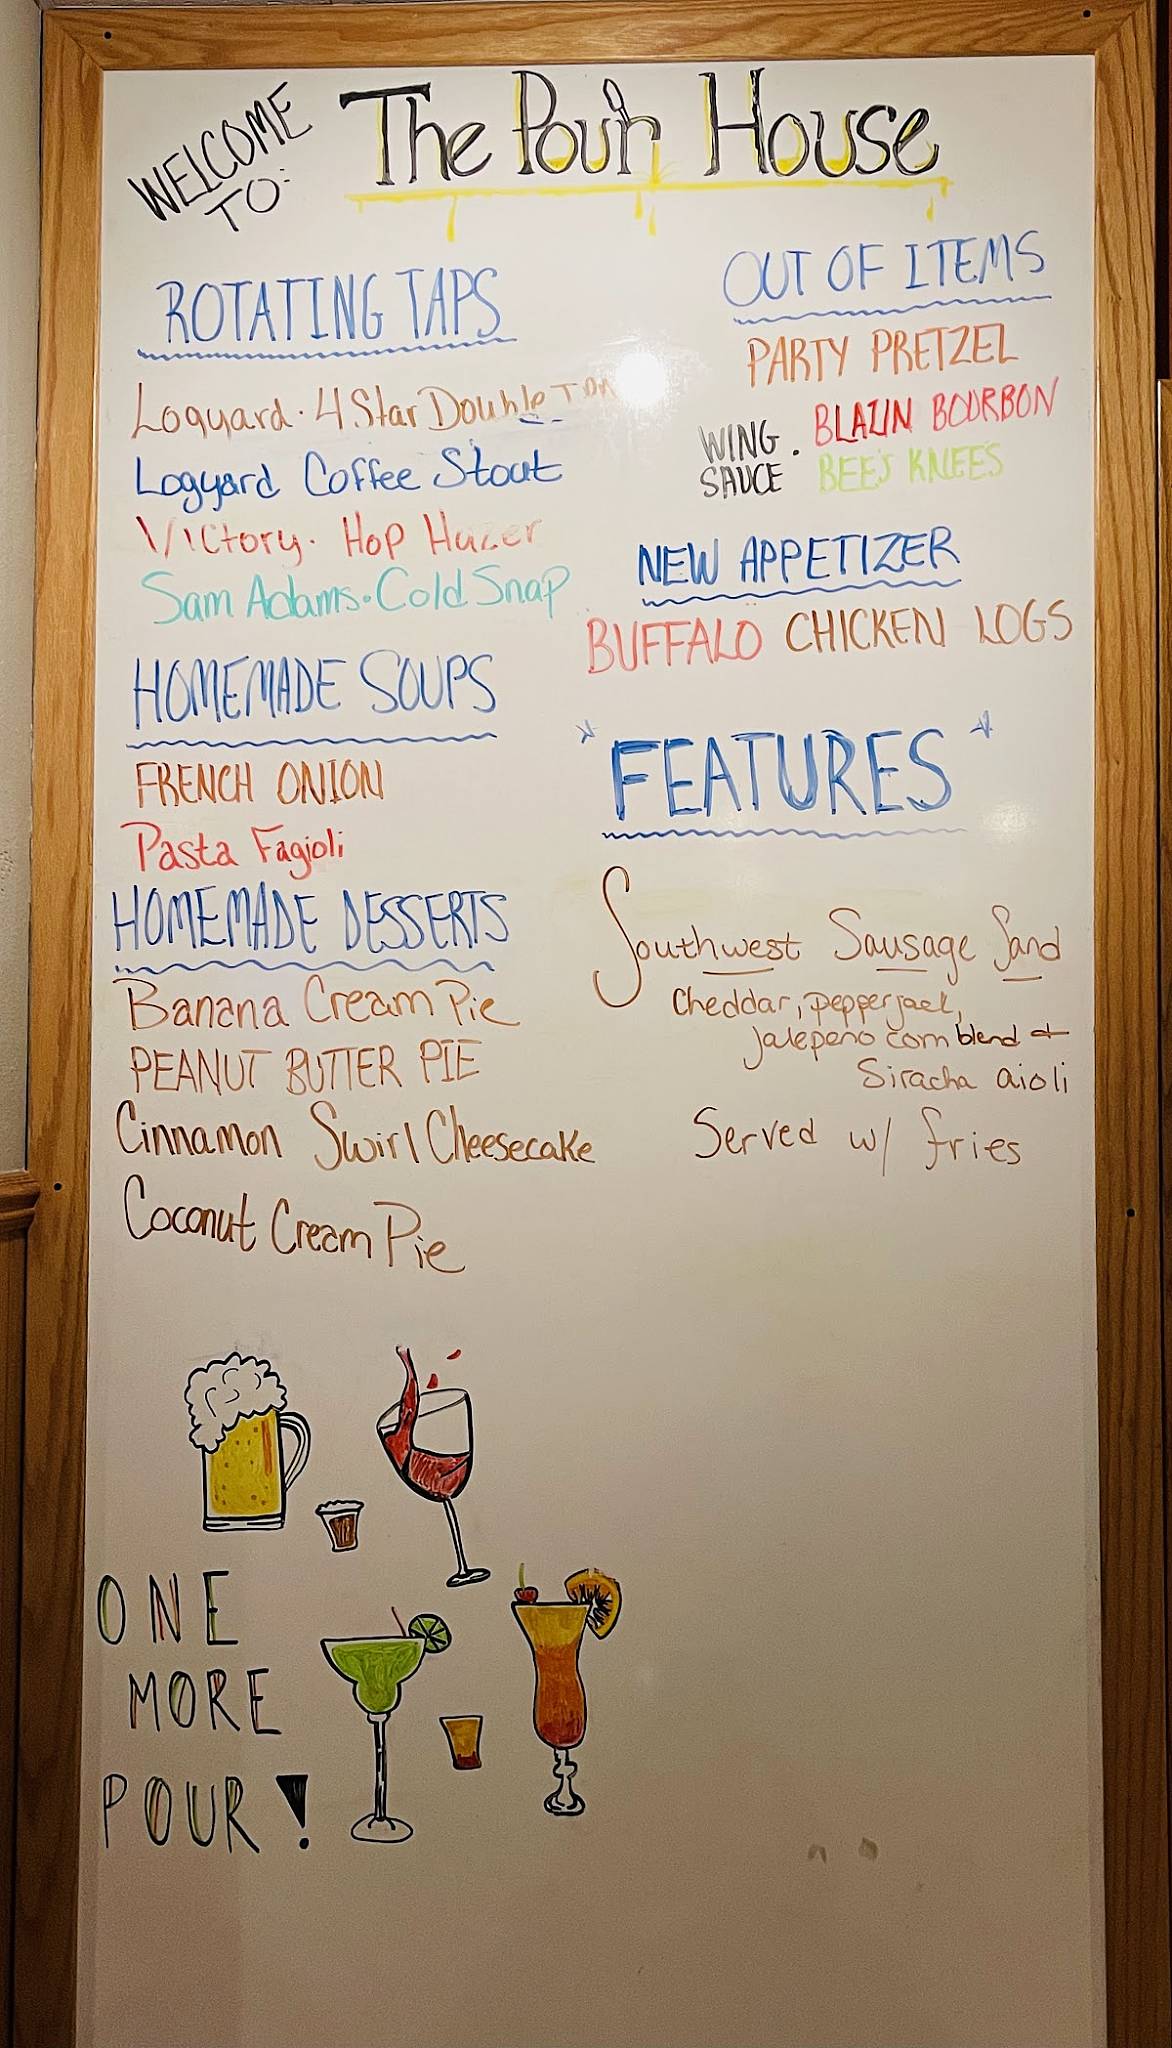 WELCOME
TO:
The Pour House
ROTATING TAPS
Logyard. 4 Star Double IPA
Logyard Coffee Stout
Victory. Hop Hazer
Sam Adams. Cold Snap
HOMEMADE SOUPS
FRENCH ONION
Pasta Fagioli
HOMEMADE DESSERTS
Banana Cream Pie
PEANUT BUTTER PIE
Cinnamon Swirl Cheesecake
Coconut Cream Pie
OUT OF ITEMS
PARTY PRETZEL
WING SAUCE . BLAZIN BOURBON
BEE'S KNEES
NEW APPETIZER
BUFFALO CHICKEN LOGS
FEATURES
Southwest Sausage Sand
Cheddar, pepperjack,
jalepeño corn blend +
Siracha aioli
Served w/ fries
ONE
MORE
POUR!